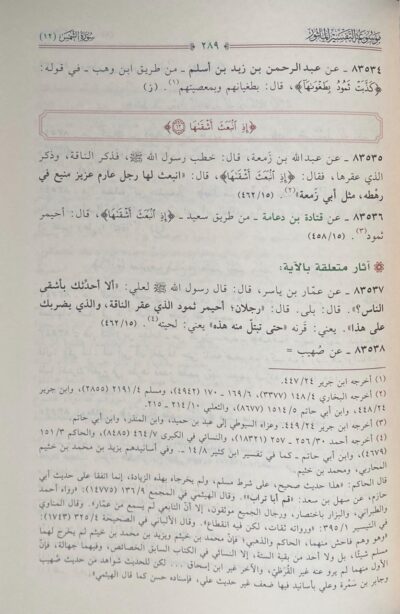 مَوْسُوعَة التَّفْسِيرُ المَاثُورُ
سُورَةُ الشَّمْسِ (١٢)
٢٨٩
٨٣٥٣٤ ـ عن عبد الرحمن بن زيد بن أسلم ـ من طريق ابن وهب ـ في قوله:
﴿كَذَّبَتْ ثَمُودُ بِطَغْوَىٰهَا﴾، قال: بطغيانهم وبمعصيتهم(١). (ز)
﴿إِذِ ٱنۢبَعَثَ أَشْقَىٰهَا ۝١٢﴾
٨٣٥٣٥ ـ عن عبدالله بن زَمعة، قال: خطب رسول الله ﷺ، فذكر الناقة، وذكر
الذي عقرها، فقال: ﴿إِذِ ٱنۢبَعَثَ أَشْقَىٰهَا﴾، قال: «انبعث لها رجل عارم عزيز منيع في
رهْطه، مثل أبي زَمعة»(٢). (٤٦٢/١٥)
٨٣٥٣٦ ـ عن قتادة بن دعامة ـ من طريق سعيد ـ ﴿إِذِ ٱنۢبَعَثَ أَشْقَىٰهَا﴾، قال: أحيمر
ثمود(٣). (٤٥٨/١٥)
آثار متعلقة بالآية:
٨٣٥٣٧ ـ عن عمّار بن ياسر، قال: قال رسول الله ﷺ لعلي: «ألا أحدّثك بأشقى
الناس؟». قال: بلى. قال: «رجلان؛ أحيمر ثمود الذي عقر الناقة، والذي يضربك
على هذا». يعني: قرنه «حتى تبتلّ منه هذه» يعني: لحيته(٤). (٤٦٢/١٥)
٨٣٥٣٨ ـ عن صُهيب =
(١) أخرجه ابن جرير ٤٤٧/٢٤.
(٢) أخرجه البخاري ١٤٨/٤ (٣٣٧٧)، ١٦٩/٦ ـ ١٧٠ (٤٩٤٢)، ومسلم ٢١٩١/٤ (٢٨٥٥)، وابن جرير
٤٤٨/٢٤، وابن أبي حاتم ١٥١٤/٥ (٨٦٧٧)، والثعلبي ٢١٤/١٠ ـ ٢١٥.
(٣) أخرجه ابن جرير ٤٤٩/٢٤. وعزاه السيوطي إلى عبد بن حميد، وابن المنذر، وابن أبي حاتم.
(٤) أخرجه أحمد ٢٥٦/٣٠ ـ ٢٥٧ (١٨٣٢١)، والنسائي في الكبرى ٤٦٤/٧ (٨٤٨٥)، والحاكم ١٥١/٣
(٤٦٧٩)، وابن أبي حاتم ـ كما في تفسير ابن كثير ١٤/٨ ـ. وفي أسانيدهم يزيد بن محمد بن خثيم
المحاربي، ومحمد بن خثيم.
قال الحاكم: «هذا حديث صحيح، على شرط مسلم، ولم يخرجاه بهذه الزيادة، إنما اتفقا على حديث أبي
حازم، عن سهل بن سعد: «قم أبا تراب»». وقال الهيثمي في المجمع ١٣٦/٩ (١٤٧٧٥): «رواه أحمد
والطبراني، والبزار باختصار، ورجال الجميع موثقون، إلا أنّ التابعي لم يسمع من عمّار». وقال المناوي
في التيسير ٣٩٥/١: «ورواته ثقات، لكن فيه انقطاع». وقال الألباني في الصحيحة ٣٢٥/٤ (١٧٤٣):
«وهو وهم فاحش منهما، الحاكم والذهبي؛ فإنّ محمد بن خيثم ويزيد بن محمد بن خيثم لم يخرج لهما
مسلم شيئًا، بل ولا أحد من بقية الستة، إلا النسائي في الكتاب السابق الخصائص، وفيهما جهالة، فإنّ
الأول منهما لم يرو عنه غير القُرَظِيّ، والآخر غير ابن إسحاق ... لكن للحديث شواهد من حديث صُهيب
وجابر بن سَمُرة وعلي بأسانيد فيها ضعف غير حديث علي، فإسناده حسن كما قال الهيثمي».